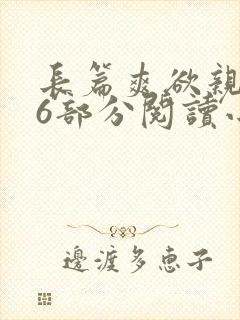 長篇爽欲親
6部分閱讀小
邊渡多恵子